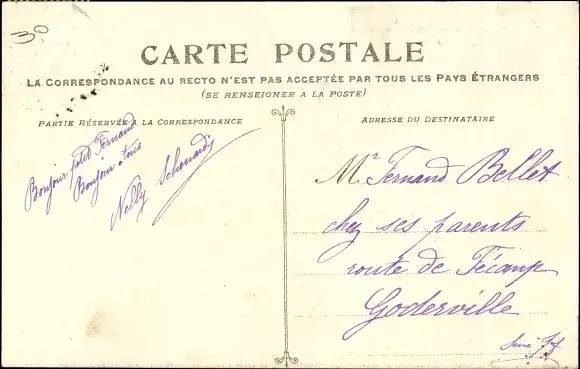 30
CARTE POSTALE
LA CORRESPONDANCE AU RECTO N'EST PAS ACCEPTÉE PAR TOUS LES PAYS ÉTRANGERS
(SE RENSEIGNER A LA POSTE)
PARTIE RÉSERVÉE A LA CORRESPONDANCE
Bonjour petit Fernand
Bonjour a tous
Nelly
ADRESSE DU DESTINATAIRE
Mr Fernand Bellet
chez ses parents
route de Fécamp
Goderville
Seine